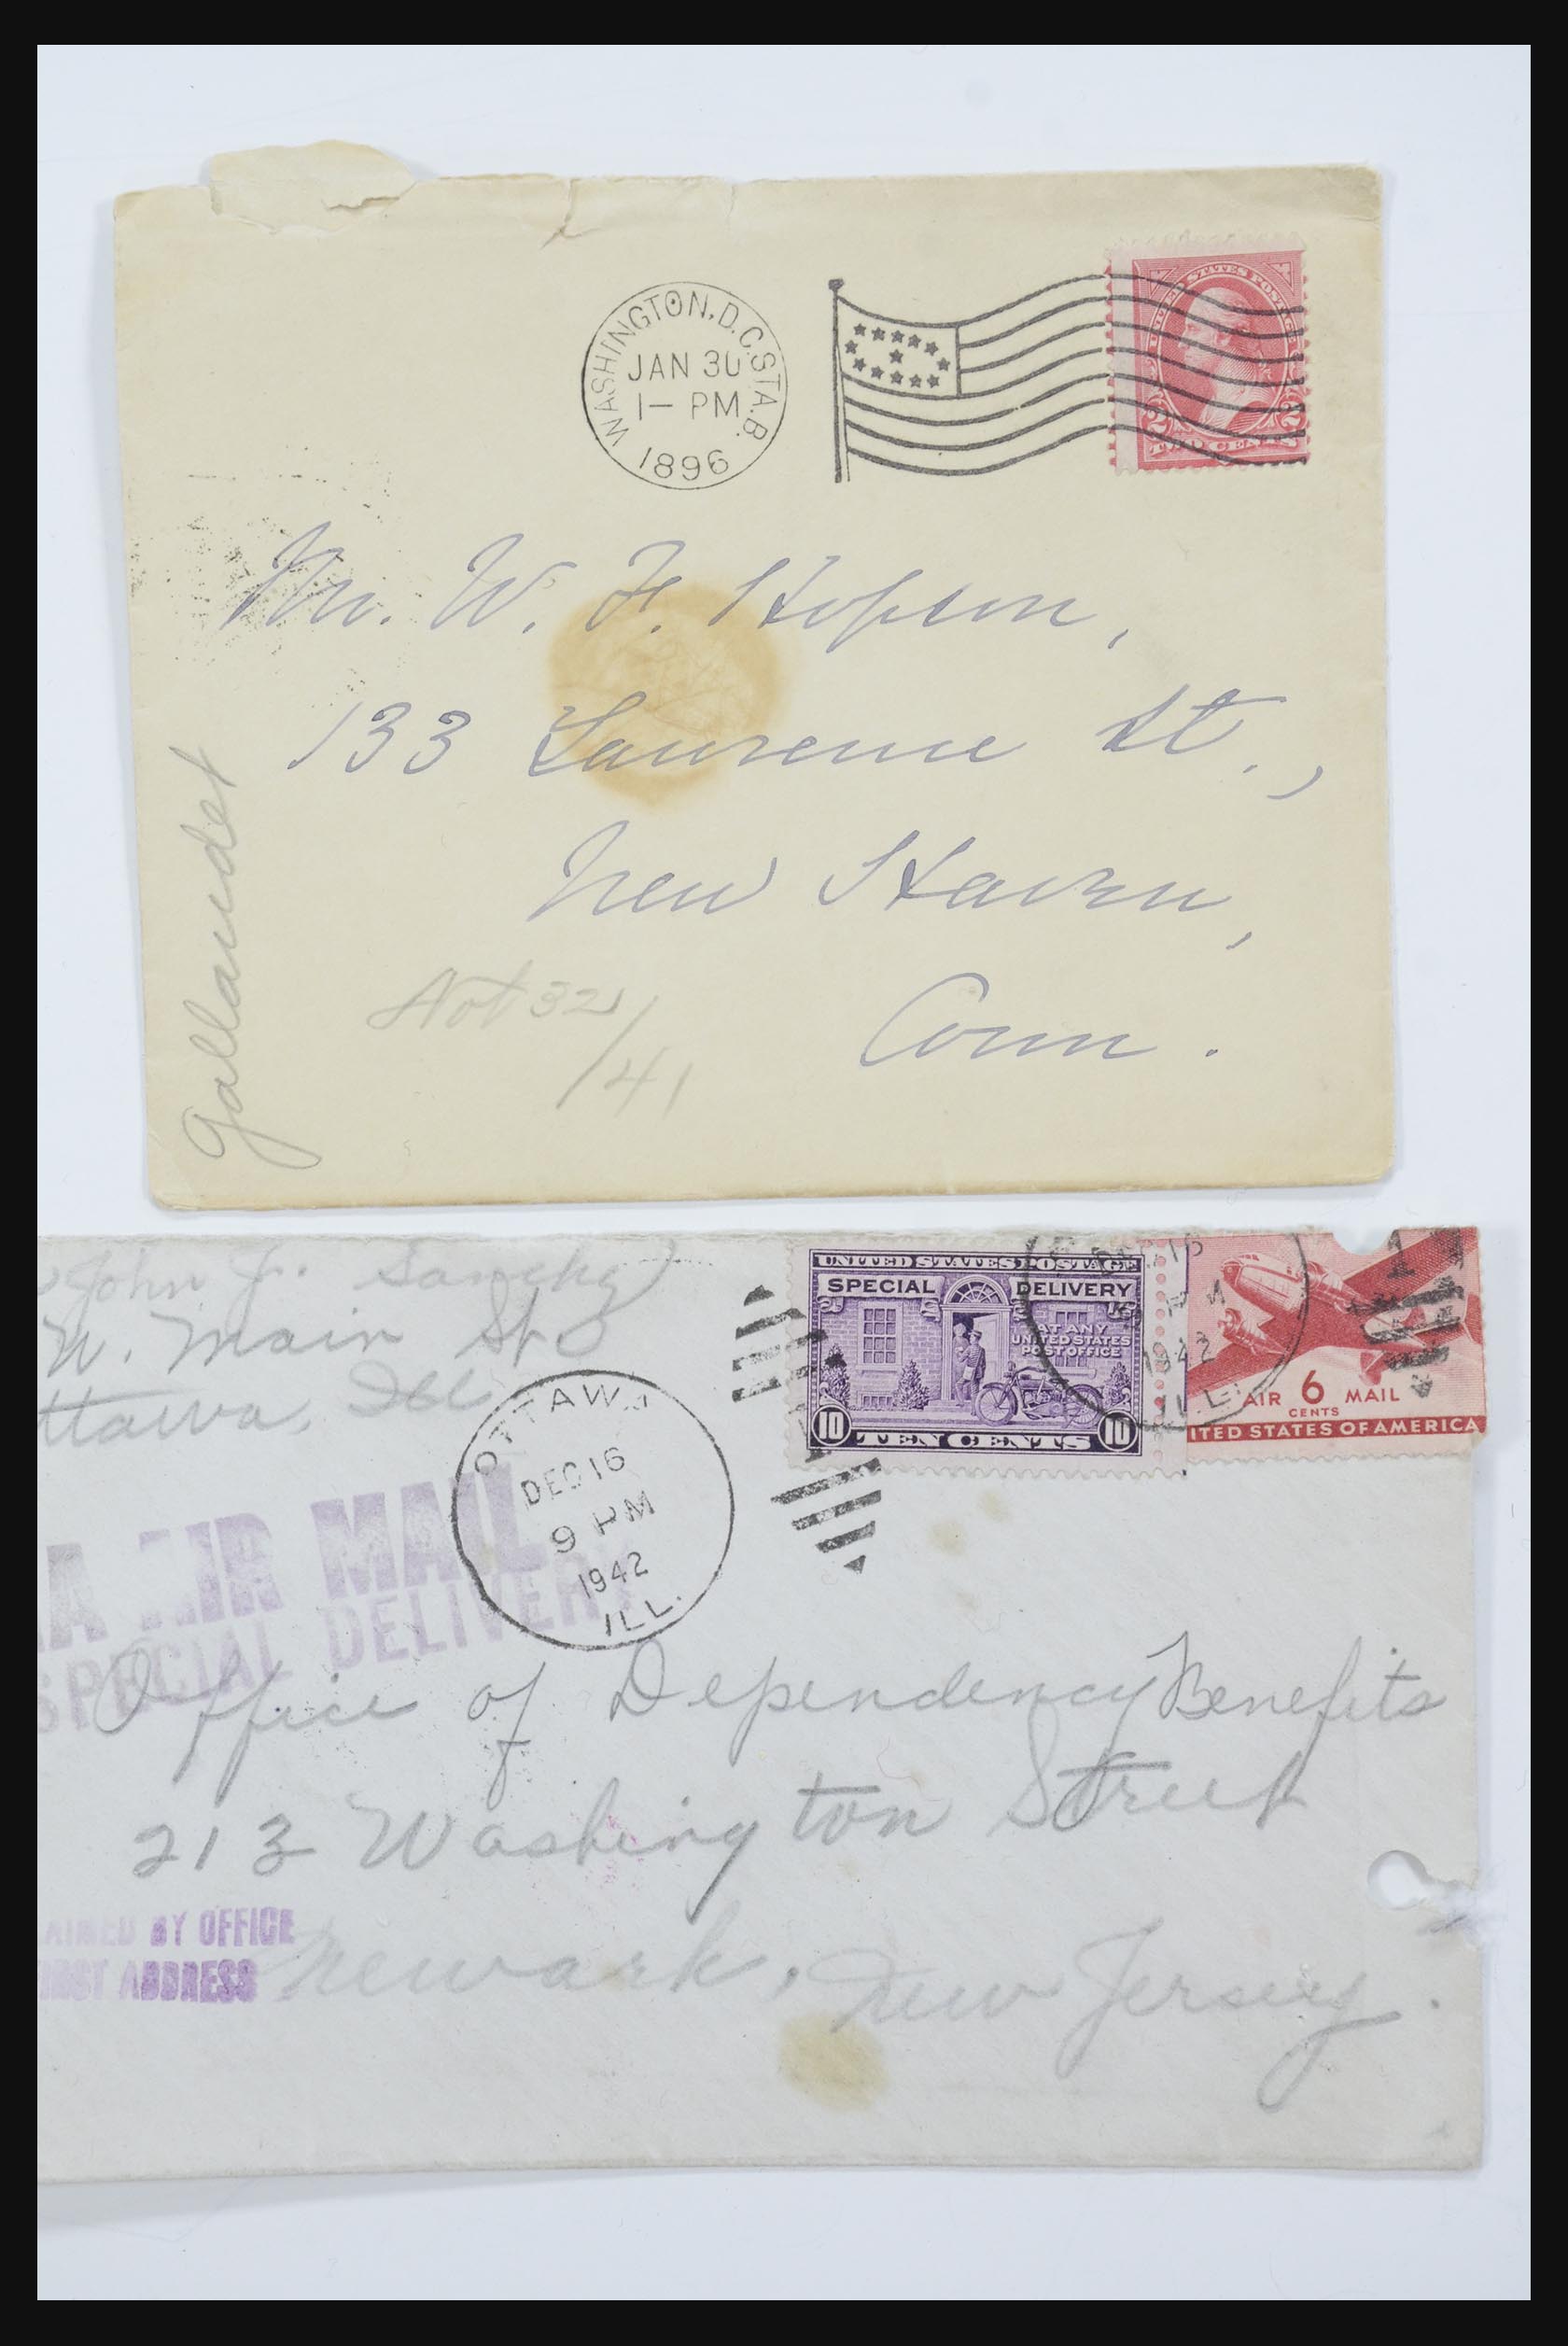 WASHINGTON, D.C. STA. B.
JAN 30
1- PM
1896
UNITED STATES POSTAGE
2 2
TWO CENTS
Mr. W. F. Hopson,
133 Lawrence St.,
New Haven,
Conn.
Gallaudet
Not 32/41
John J.
W. Main St
ttawa, Ill
OTTAWA
DEC 16
9 PM
1942
ILL.
UNITED STATES POSTAGE
SPECIAL DELIVERY
AT ANY
UNITED STATES
POST OFFICE
10 10
TEN CENTS
DEC 16
PM
1942
ILL.
AIR 6 MAIL
CENTS
ITED STATES OF AMERICA
IA AIR MAIL
SPECIAL DELIVERY
Office of Dependency Benefits
213 Washington Street
Newark, New Jersey.
AINED BY OFFICE
IRST ADDRESS